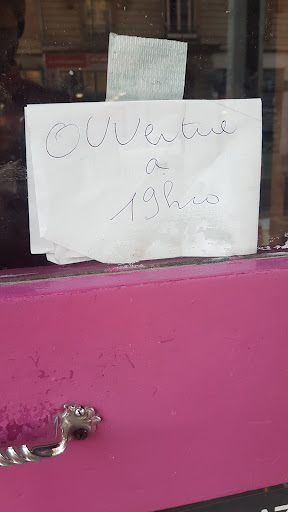 Ouverture
a
19h20